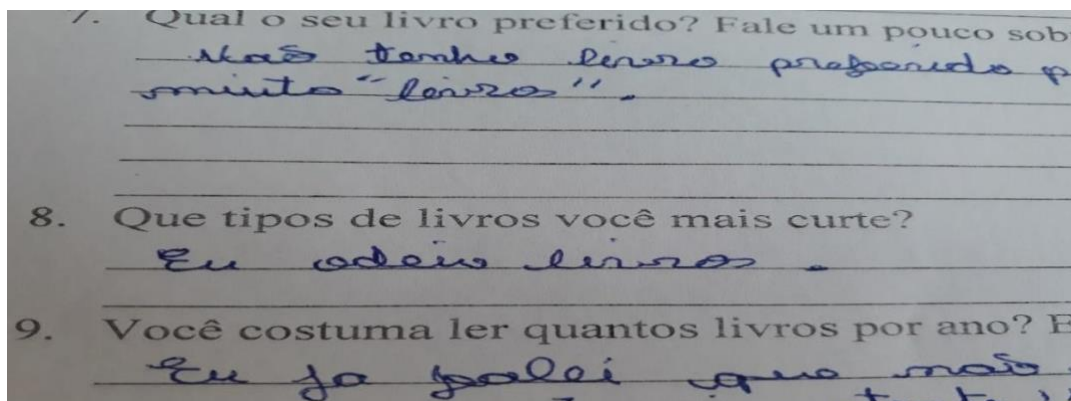 7. Qual o seu livro preferido? Fale um pouco sob
Não tenho livro preferido p
muito "livro".
8. Que tipos de livros você mais curte?
Eu odeio livros.
9. Você costuma ler quantos livros por ano? E
Eu ja falei que não